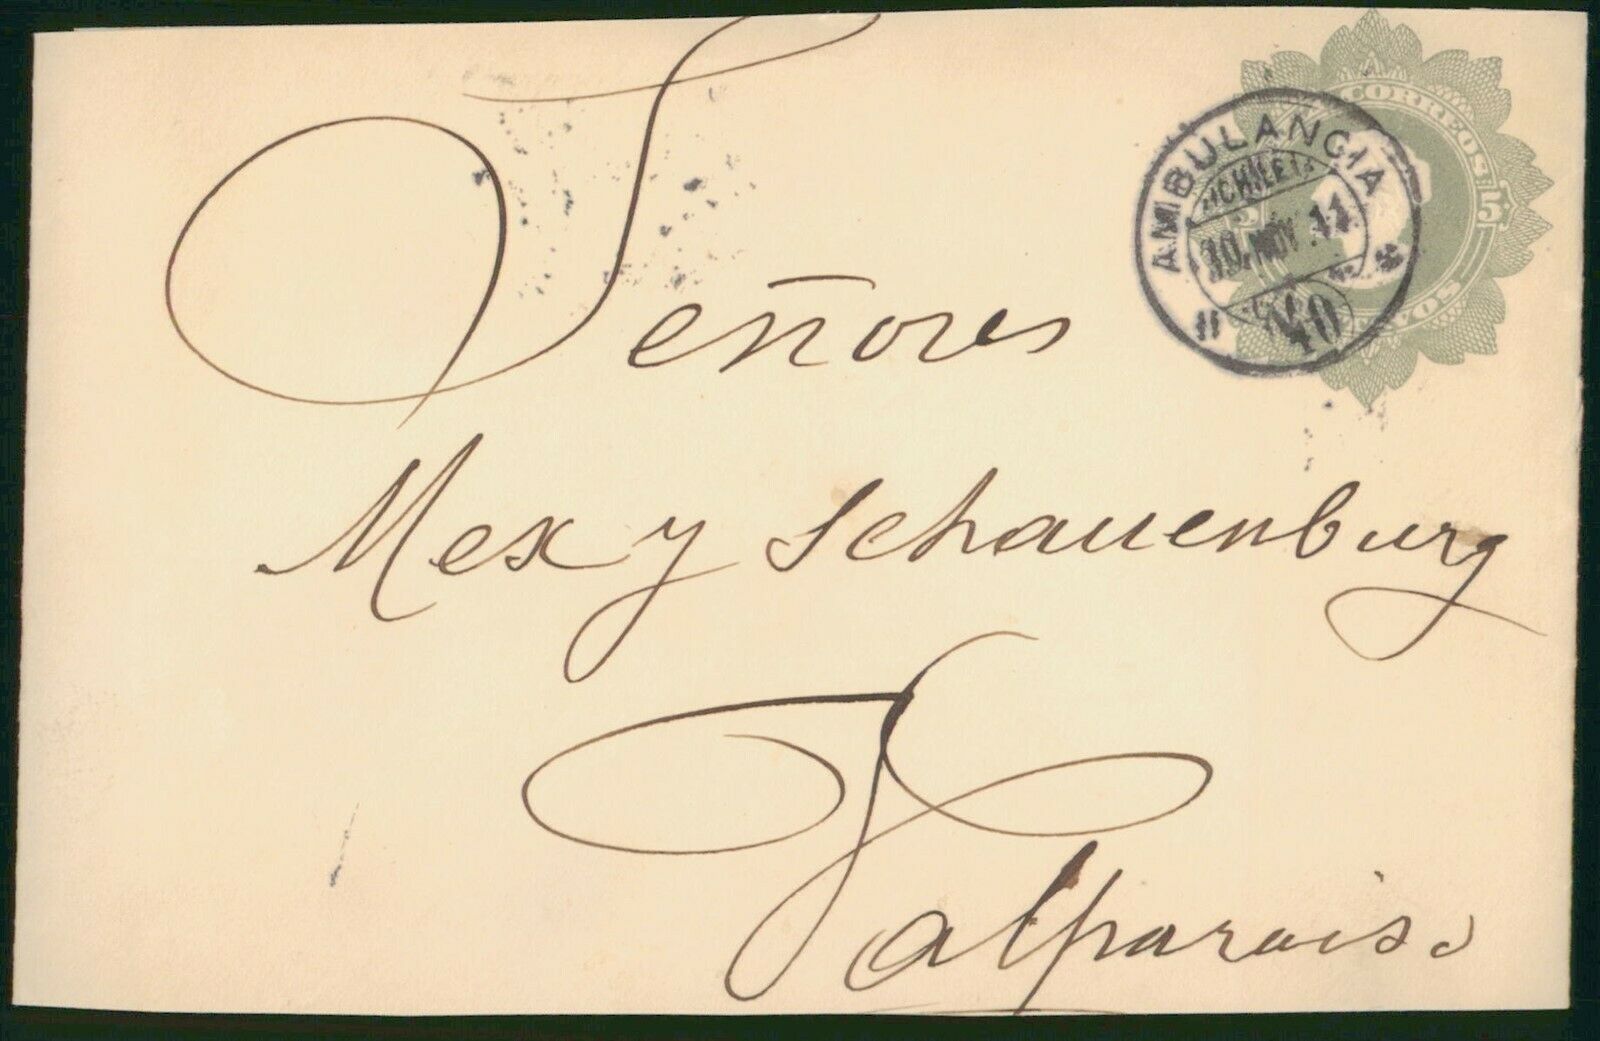 CORREOS
5
AMBULANCIA
CHILE
10. NOV 11
40
Señores
Mex y Schauenburg
Valparaiso